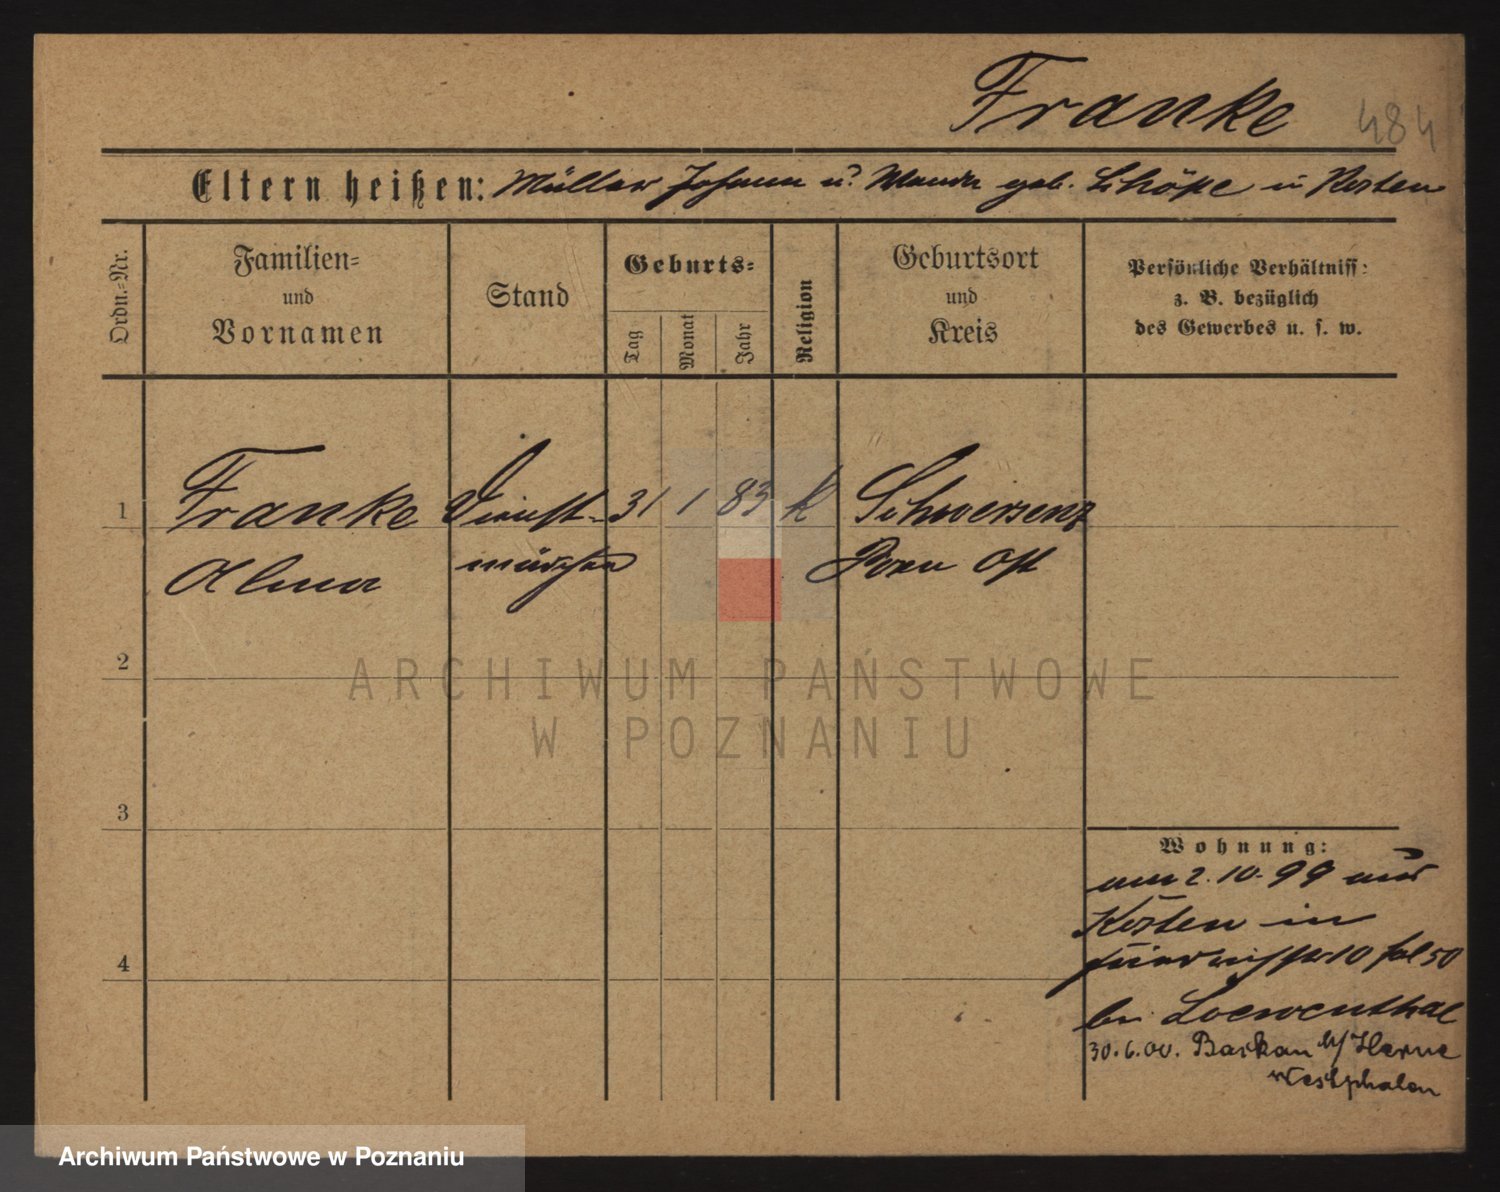 Franke 484
Eltern heißen: Müller Johann u. Wanda geb. Schöpe in Kosten
Ordn.-Nr.
Familien-
und
Vornamen
Stand
Geburts-
Tag
Monat
Jahr
Religion
Geburtsort
und
Kreis
Persönliche Verhältniss:
z. B. bezüglich
des Gewerbes u. s. w.
1 Franke Dienst- 31 1 83 K Schwersenz
Alma mädchen Posen Ost
2
3
4
Wohnung:
am 2.10.99 aus
Kosten in
10 50
bei Loewenthal
30.6.00. Baukau b/ Herne
Westphalen
ARCHIWUM PAŃSTWOWE
W POZNANIU
Archiwum Państwowe w Poznaniu